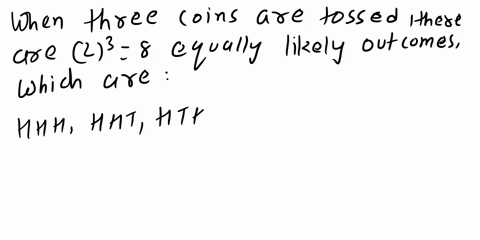 When three coins are tossed, there
are (2)³ = 8 equally likely outcomes,
which are :
HHH, HHT, HTH